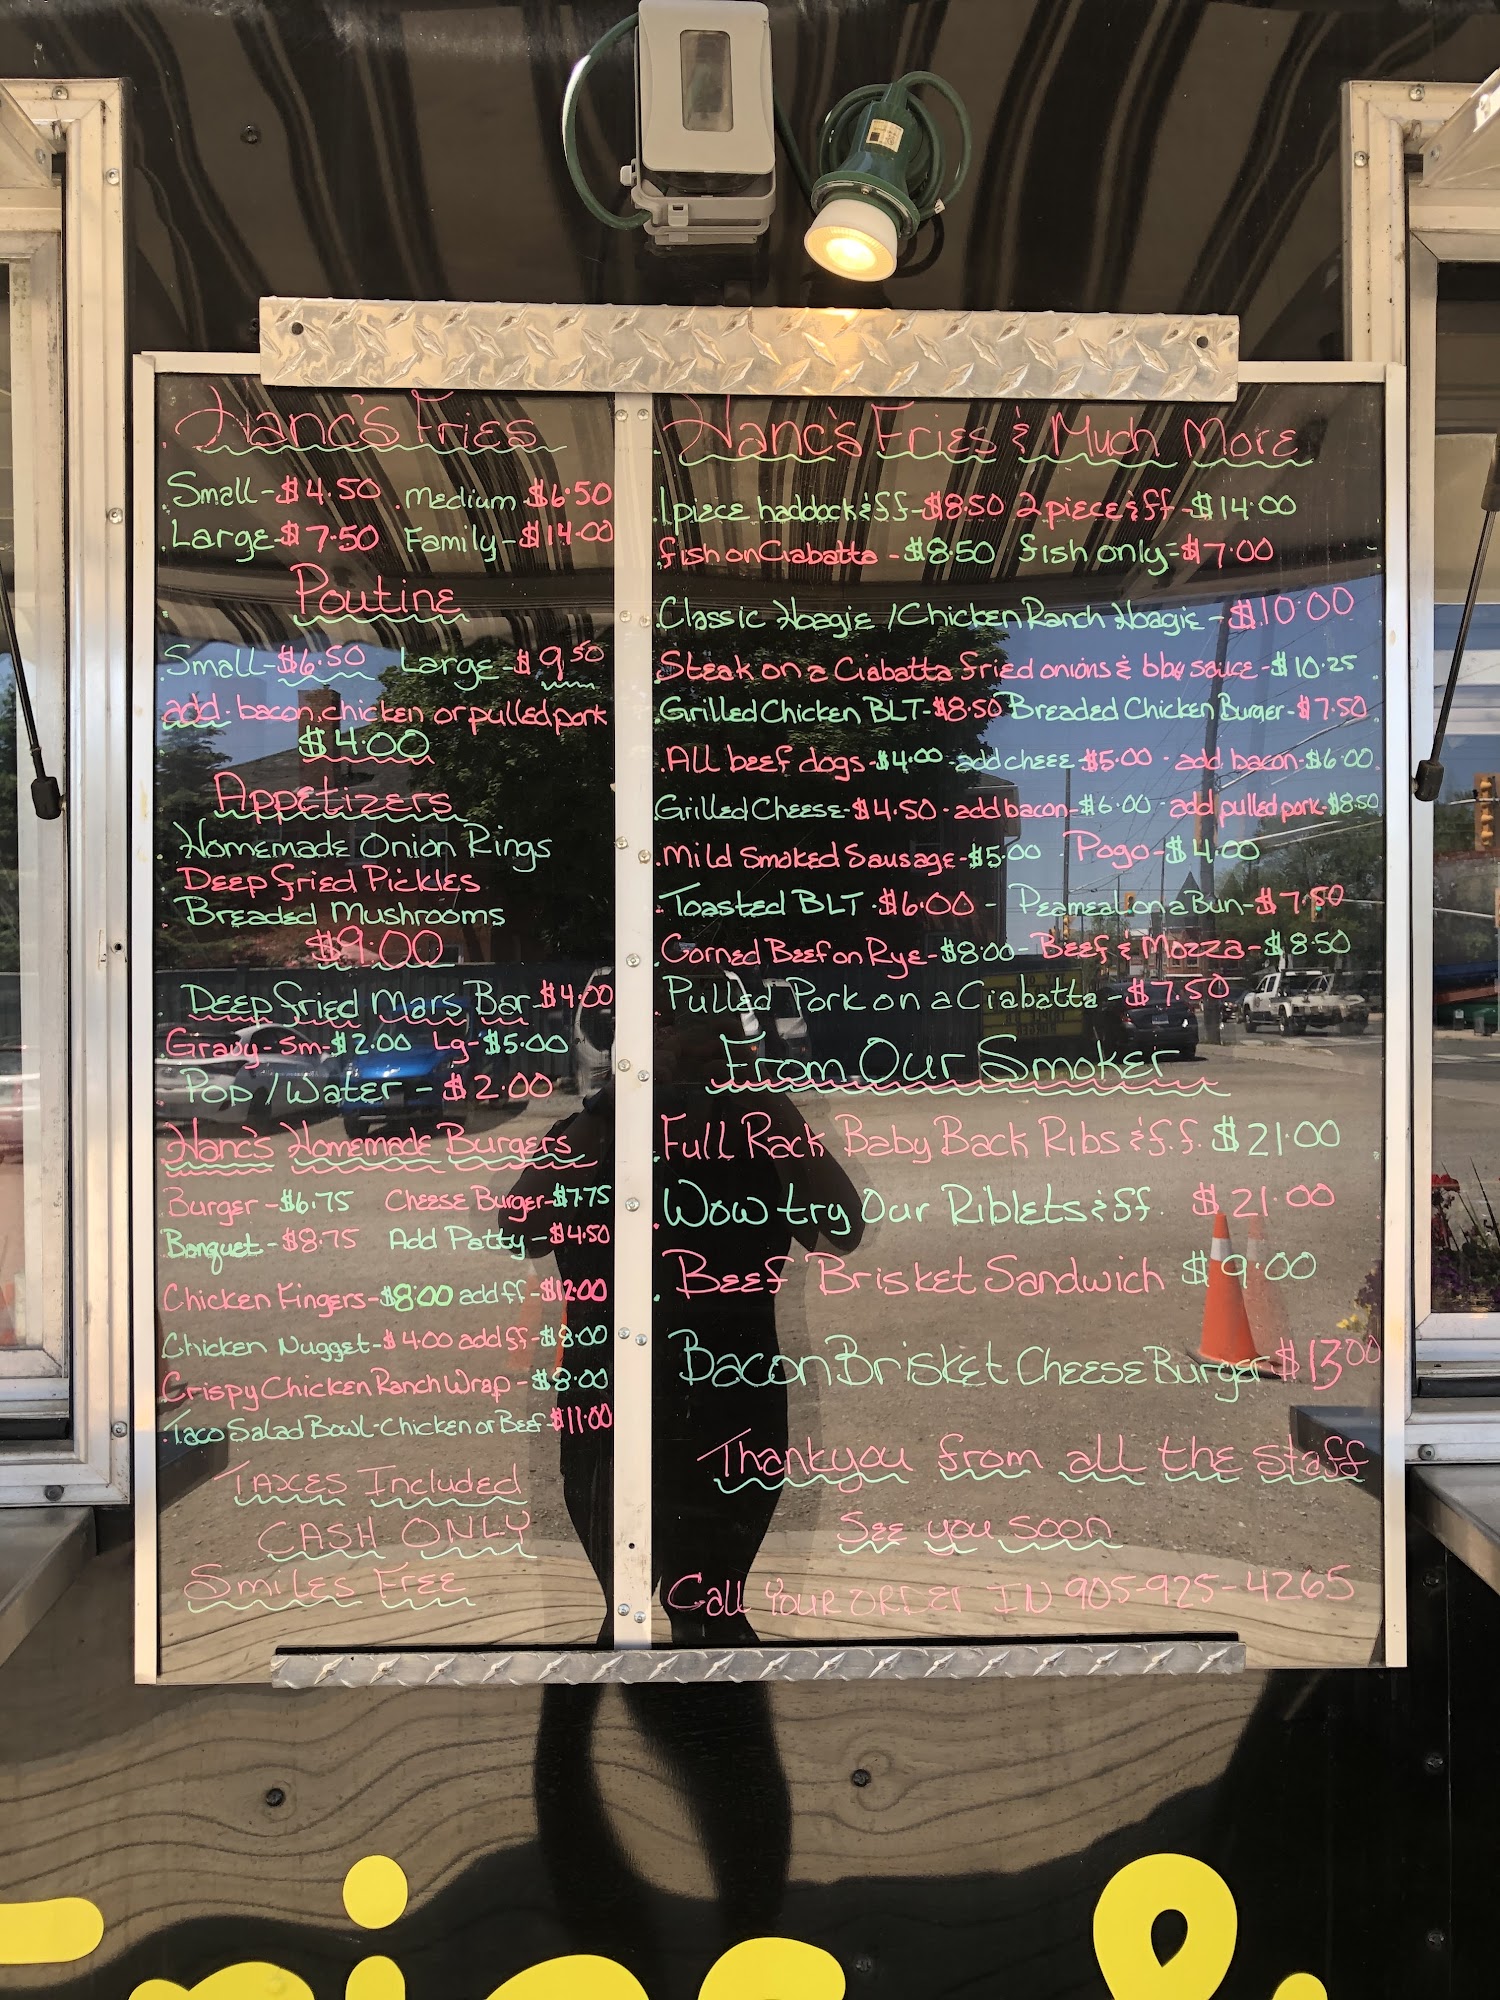 Hanc's Fries
Small-$4.50 . Medium $6.50
Large-$7.50 Family-$14.00
Poutine
Small-$6.50 Large-$9.50
add. bacon, chicken or pulled pork
$4.00
Appetizers
Homemade Onion Rings
Deep fried Pickles
Breaded Mushrooms
$9.00
Deep fried Mars Bar-$4.00
Gravy-Sm-$2.00 Lg-$5.00
Pop/Water-$2.00
Hanc's Homemade Burgers
Burger-$6.75 Cheese Burger-$7.75
Banquet-$8.75 Add Patty-$4.50
Chicken Fingers-$8.00 add ff-$12.00
Chicken Nugget-$4.00 add ff-$8.00
Crispy Chicken Ranch Wrap-$8.00
Taco Salad Bowl-Chicken or Beef-$11.00
Taxes Included
CASH ONLY
Smiles Free
Hanc's Fries & Much More
1 piece haddock & ff-$8.50 2 piece & ff-$14.00
fish on Ciabatta-$8.50 fish only-$7.00
Classic Hoagie / Chicken Ranch Hoagie-$10.00
Steak on a Ciabatta fried onions & bbq sauce-$10.25
Grilled Chicken BLT-$8.50 Breaded Chicken Burger-$7.50
All beef dogs-$4.00-add cheese-$5.00-add bacon-$6.00
Grilled Cheese-$4.50-add bacon-$6.00-add pulled pork-$8.50
Mild Smoked Sausage-$5.00 - Pogo-$4.00
Toasted BLT-$6.00 - Peameal on a Bun-$7.50
Corned Beef on Rye-$8.00-Beef & Mozza-$8.50
Pulled Pork on a Ciabatta-$7.50
From Our Smoker
Full Rack Baby Back Ribs & f.f. $21.00
Wow try Our Riblets & ff. $21.00
Beef Brisket Sandwich $9.00
Bacon Brisket Cheese Burger $13.00
Thankyou from all the staff
See you soon
Call YOUR ORDER IN 905-925-4265